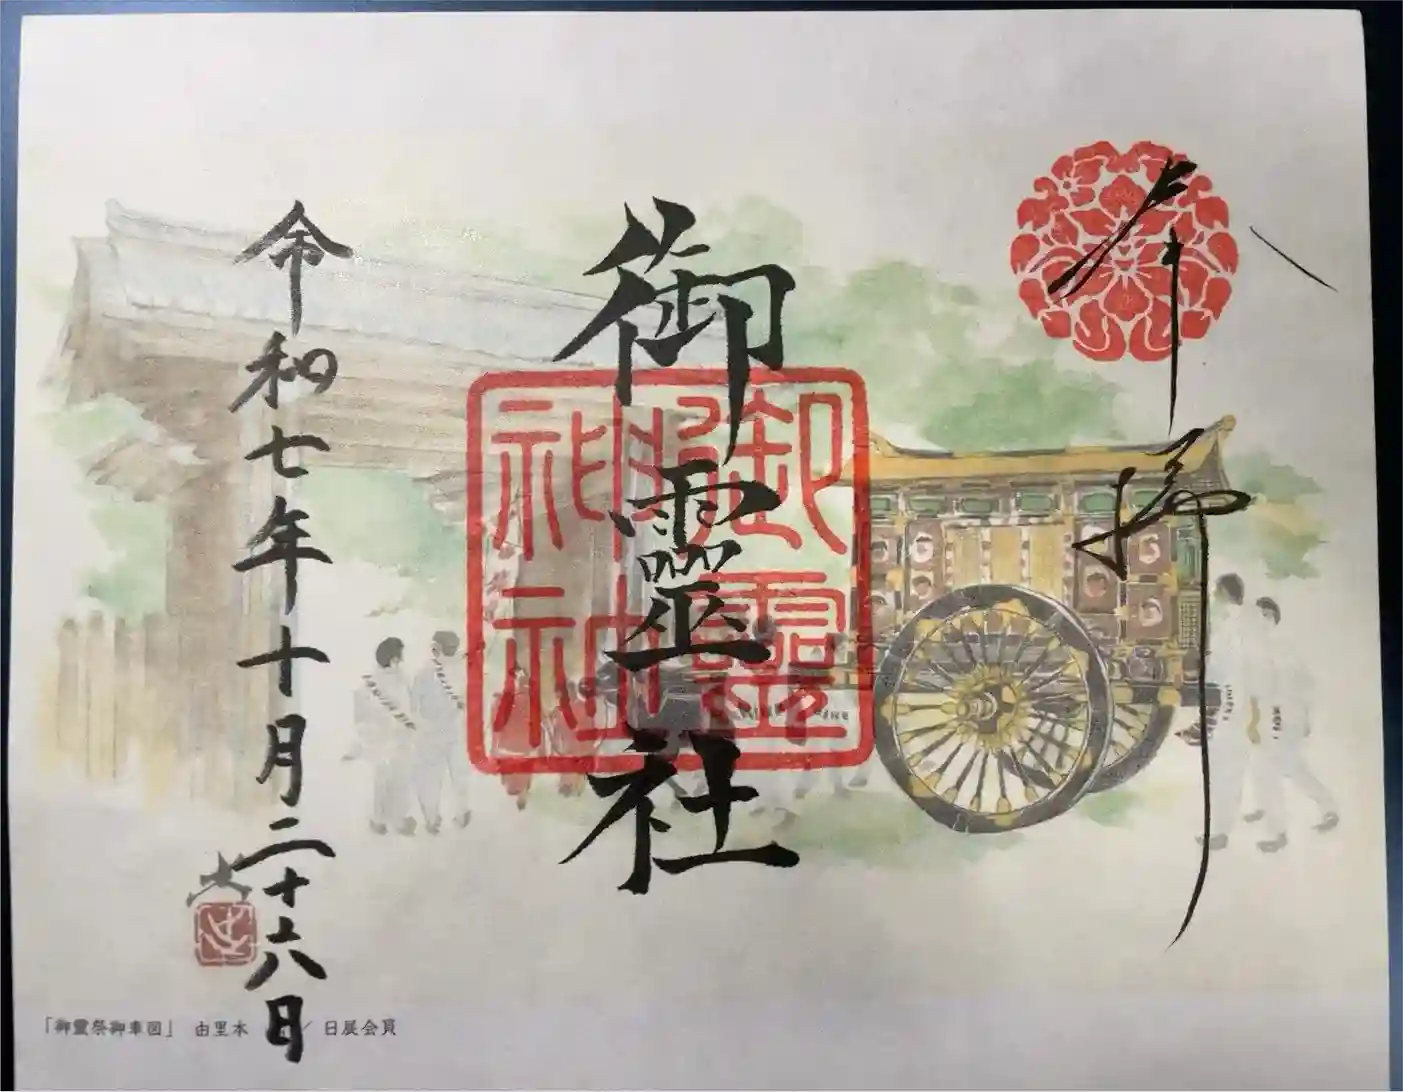 奉拝
御靈社
御靈神社神社
令和七年十月二十六日
「御靈祭御車図」 由里本 ／ 日展会員